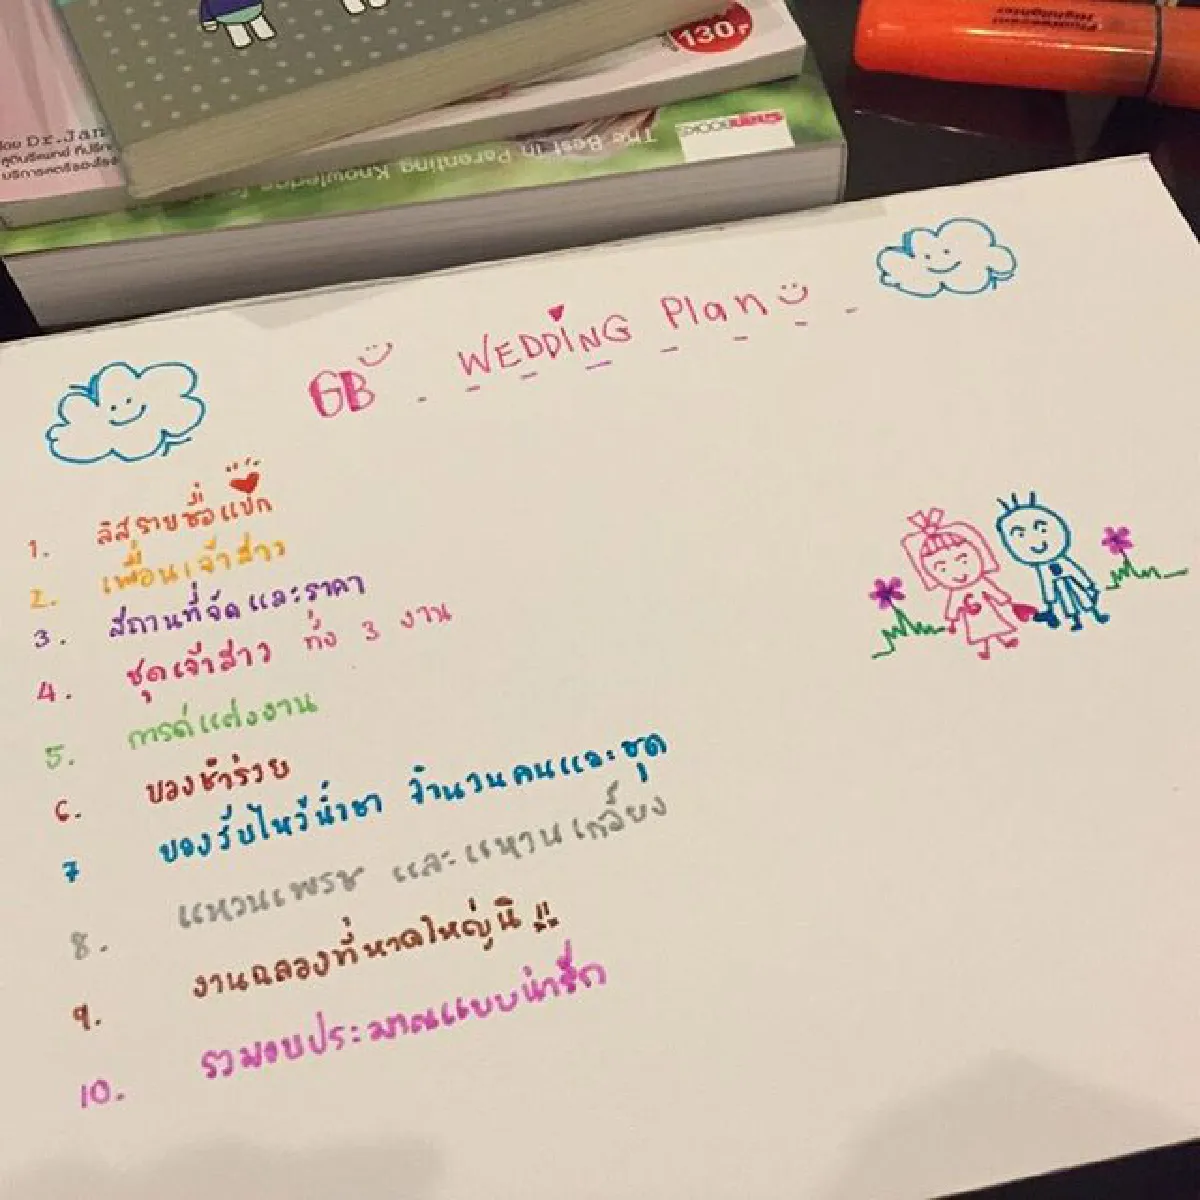 130.-
โดย Dr.Jan
The Best in Parenting Knowledge
GB WEDDING Plan
1. ลิสรายชื่อแขก
2. เพื่อนเจ้าสาว
3. สถานที่จัดและราคา
4. ชุดเจ้าสาว ทั้ง 3 งาน
5. การด์แต่งงาน
6. ของชำร่วย
7 ของรับไหว้น้ำชา จำนวนคนและชุด
8. แหวนเพรช และแหวนเกลี้ยง
9. งานฉลองที่หาดใหญ่นิ !!
10. รวมงบประมาณแบบน่ารัก